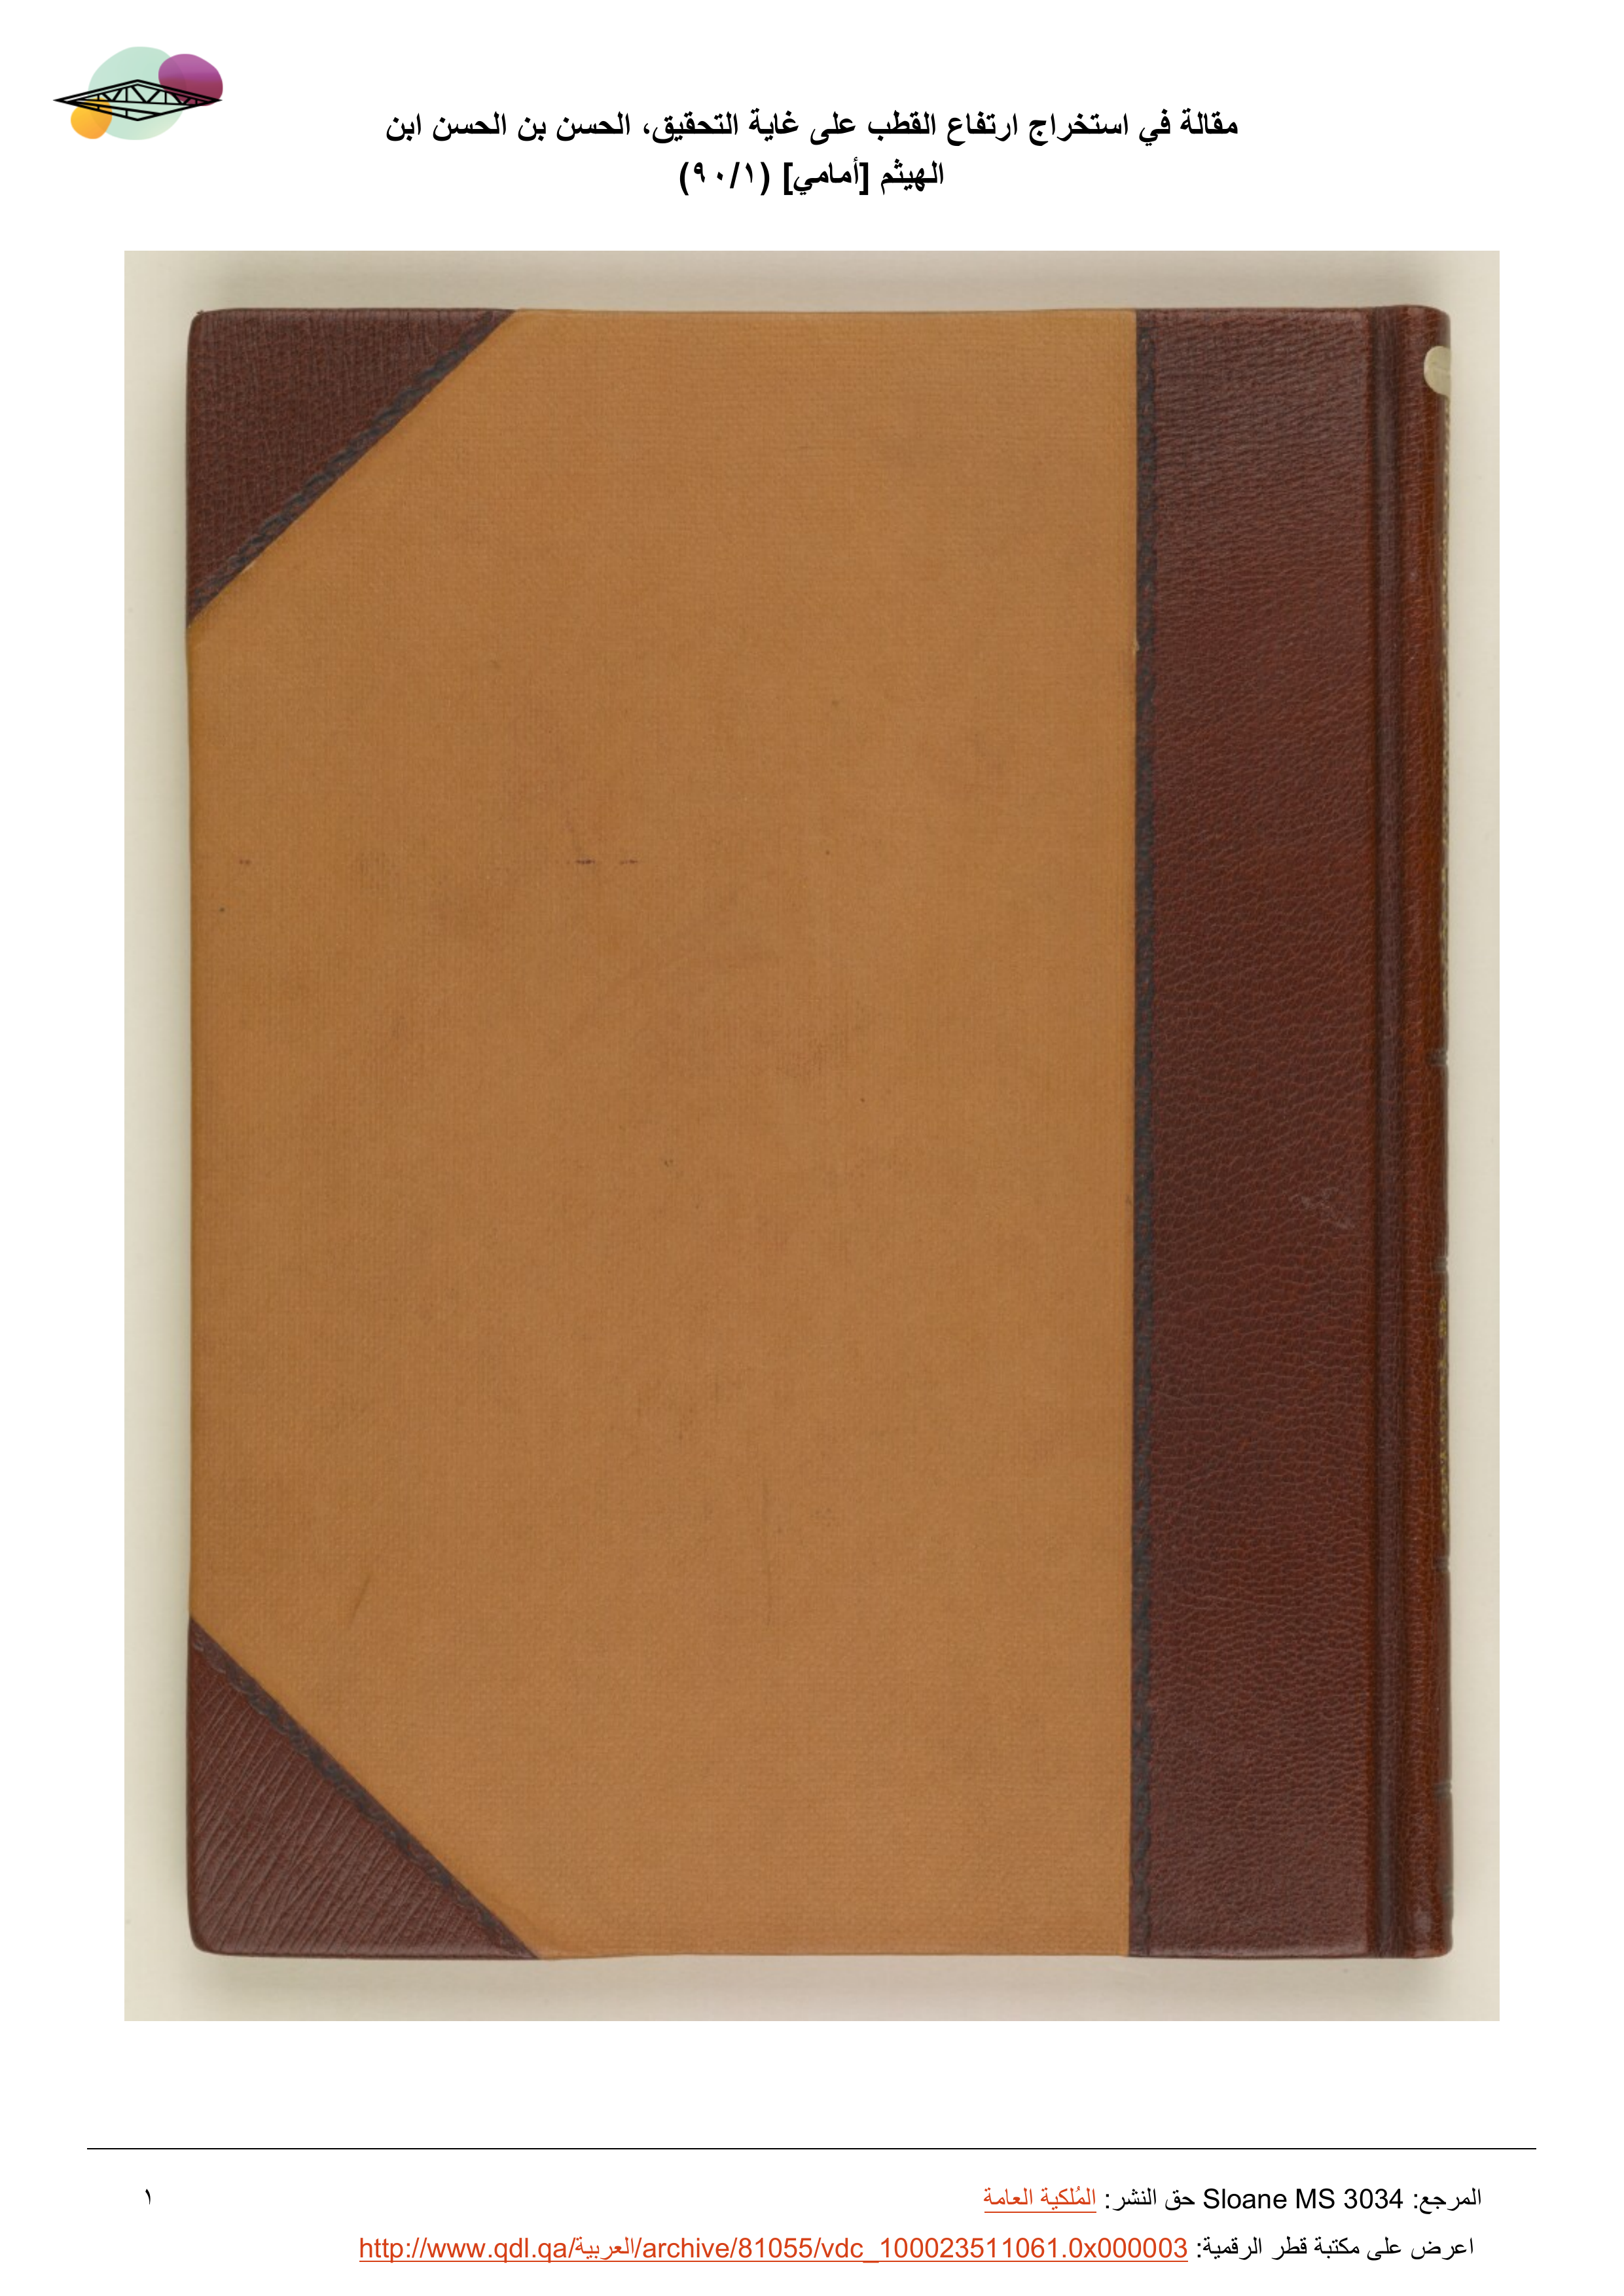 مقالة في استخراج ارتفاع القطب على غاية التحقيق، الحسن بن الحسن ابن
الهيثم [أمامي] (٩٠/١)
المرجع: Sloane MS 3034 حق النشر: المُلكية العامة
١
اعرض على مكتبة قطر الرقمية: http://www.qdl.qa/العربية/archive/81055/vdc_100023511061.0x000003